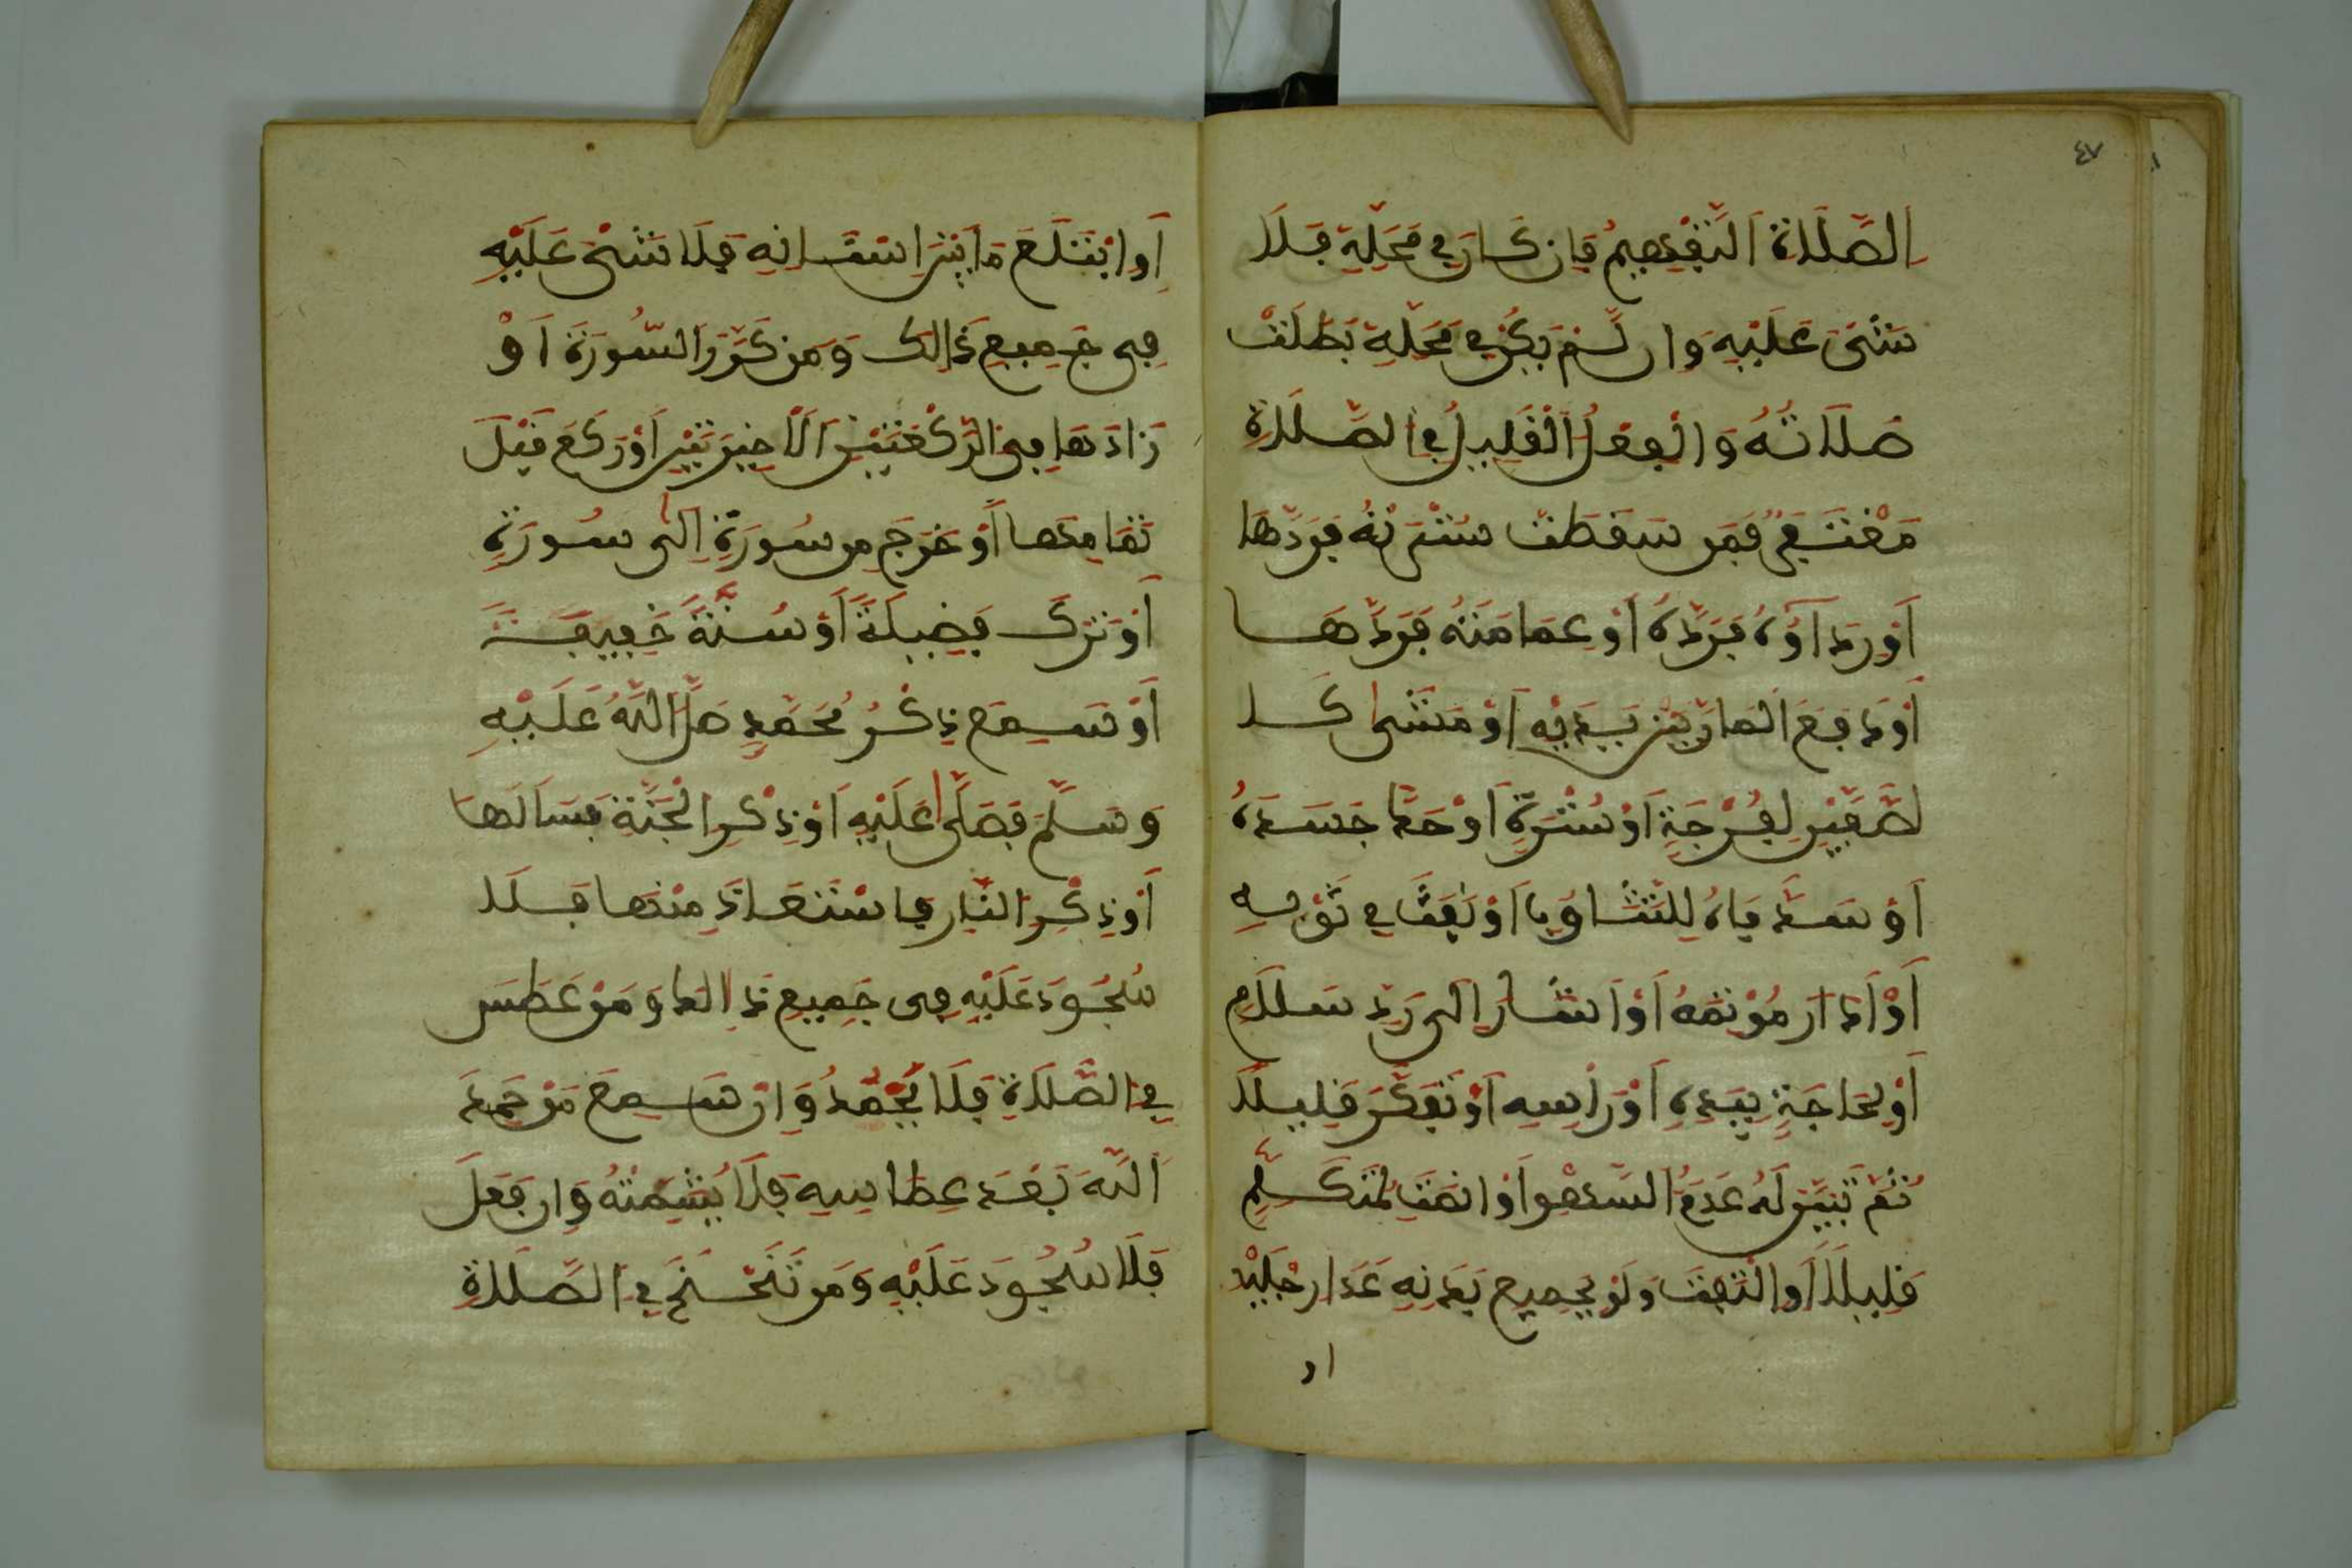 ٤٧
الصَّلَاةِ التَّفْهِيمُ فَإن كَانَ فِي مَحَلِّهِ فَلَا
شَيْءَ عَلَيْهِ وَإن لَمْ يَكُن فِي مَحَلِّهِ بَطَلَتْ
صَلَاتُهُ وَالْفِعْلُ الْقَلِيلُ فِي الصَّلَاةِ
مُغْتَفَرٌ فَمَن سَقَطَتْ سُتْرَتُهُ فَرَدَّهَا
أَوْ رِدَاؤُهُ فَرَدَّهُ أَوْ عِمَامَتُهُ فَرَدَّهَا
أَوْ دَفَعَ الْمَارَّ بَيْنَ يَدَيْهِ أَوْ مَشَى كَا
لصَّفَّيْنِ لِفُرْجَةٍ أَوْ سُتْرَةٍ أَوْ حَكَّ جَسَدَهُ
أَوْ سَدَّ فَاهُ لِلتَّثَاوُبِ أَوْ نَفَثَ فِي ثَوْبِهِ
أَوْ أَدَارَ مُؤْتَمَّهُ أَوْ أَشَارَ إلَى رَدِّ سَلَامٍ
أَوْ لِحَاجَةٍ بِيَدِهِ أَوْ رَأْسِهِ أَوْ تَفَكَّرَ قَلِيلًا
ثُمَّ تَبَيَّنَ لَهُ عَدَمُ السَّهْوِ أَوْ أنصَتَ لِمُتَكَلِّمٍ
قَلِيلًا أَوِ الْتَفَتَ وَلَوْ بِجَمِيعِ بَدَنِهِ عَدَا رِجْلَيْهِ
او
أَوِ ابْتَلَعَ مَا بَيْنَ اسْنَانِهِ فَلَا شَيْءَ عَلَيْهِ
فِي جَمِيعِ ذَالِكَ وَمَن كَرَّرَ السُّورَةَ أَوْ
زَادَهَا فِي الرَّكْعَتَيْنِ الْأَخِيرَتَيْنِ أَوْ رَكَعَ قَبْلَ
تَمَامِهَا أَوْ خَرَجَ مِن سُورَةٍ إِلَى سُورَةٍ
أَوْ تَرَكَ فَضِيلَةً أَوْ سُنَّةً خَفِيفَةً
أَوْ سَمِعَ ذِكْرُ مُحَمَّدٍ صَلَّى اللَّهُ عَلَيْهِ
وَسَلَّمَ فَصَلَّى عَلَيْهِ أَوْ ذِكْرِ الْجَنَّةِ فَسَأَلَهَا
أَوْ ذِكْرِ النَّارِ فَاسْتَعَاذَ مِنْهَا فَلَا
سُجُودَ عَلَيْهِ فِي جَمِيعِ ذَالِكَ وَمَنْ عَطَسَ
فِي الصَّلَاةِ فَلَا يَحْمَدُ وَإنْ سَمِعَ مَنْ حَمِدَ
اللَّهَ بَعْدَ عِطَاسِهِ فَلَا يُشَمِّتْهُ وَإن فَعَلَ
فَلَا سُجُودَ عَلَيْهِ وَمَن تَنَحْنَحَ فِي الصَّلَاةِ